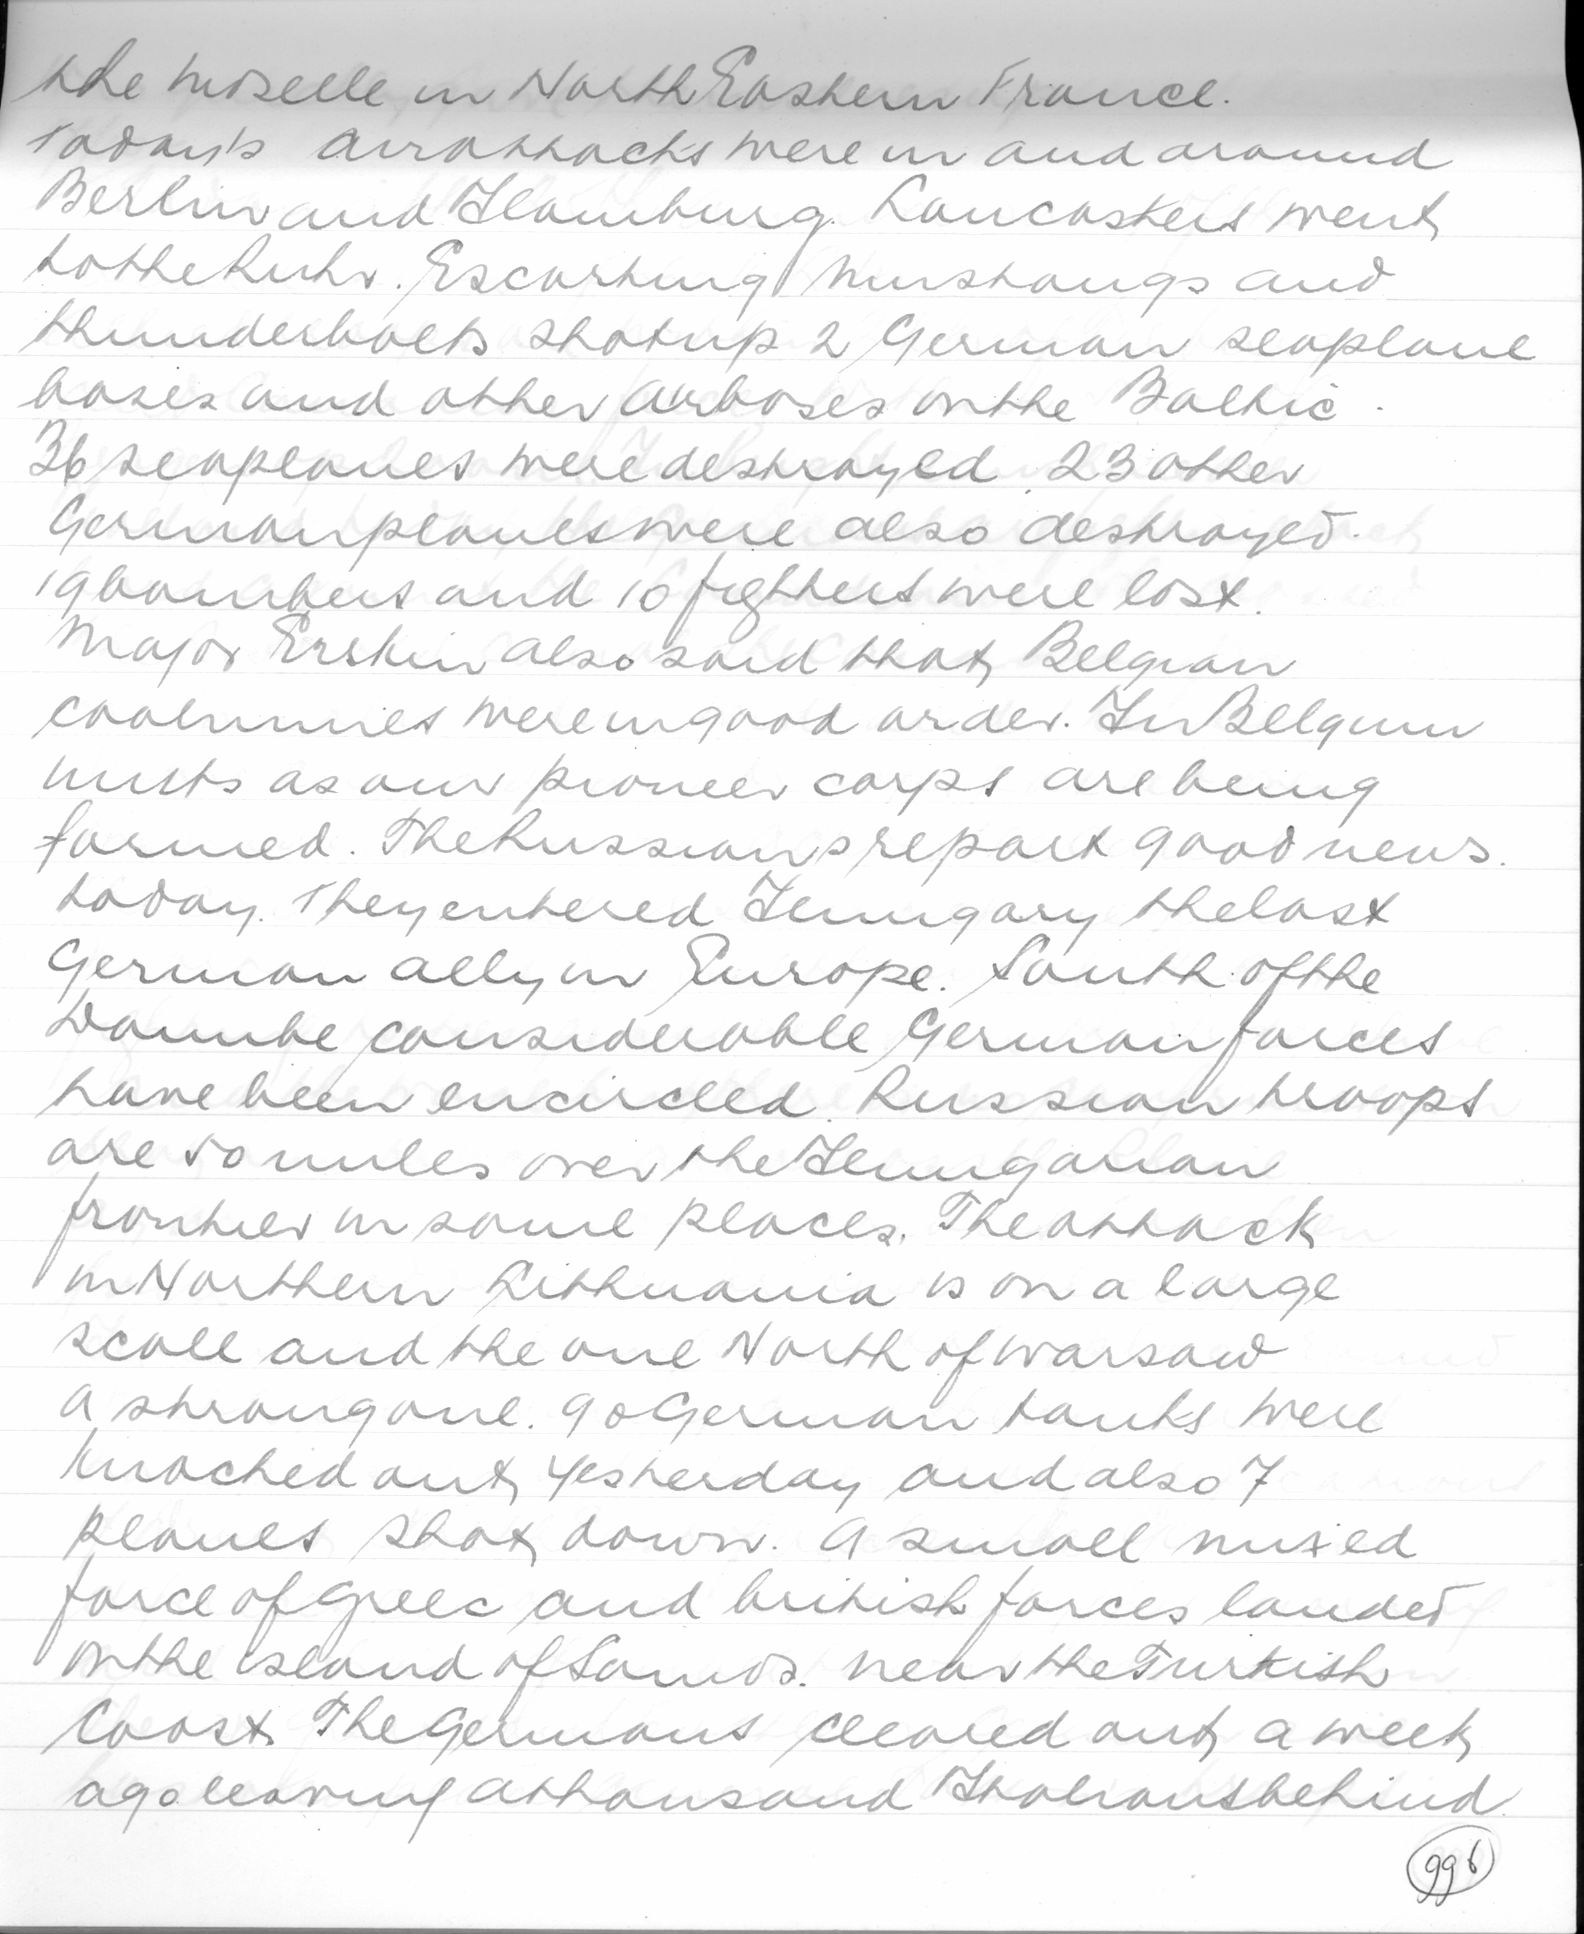 the Moselle in North Eastern France.
Today's airattacks were in and around
Berlin and Hamburg. Lancasters went
to the Ruhr. Escorting Mustangs and
thunderbolts shot up 2 German seaplane
bases and other airbases on the Baltic.
36 seaplanes were destroyed. 23 other
German planes were also destroyed.
19 bombers and 10 fighters were lost.
Major Erskin also said that Belgian
coalmines were in good order. In Belgium
units as our pioneer corps are being
formed. The Russians report good news
today. They entered Hungary the last
German ally in Europe. South of the
Danube considerable German forces
have been encircled. Russian troops
are 50 miles over the Hungarian
frontier in some places. The attack
in Northern Lithuania is on a large
scale and the one North of Warsaw
a strong one. 90 German tanks were
knocked out yesterday and also 7
planes shot down. A small mixed
force of Greec and british forces landed
on the island of Samos. near the Turkish
Coast. The Germans cleared out a week
ago leaving a thousand Italians behind.
996